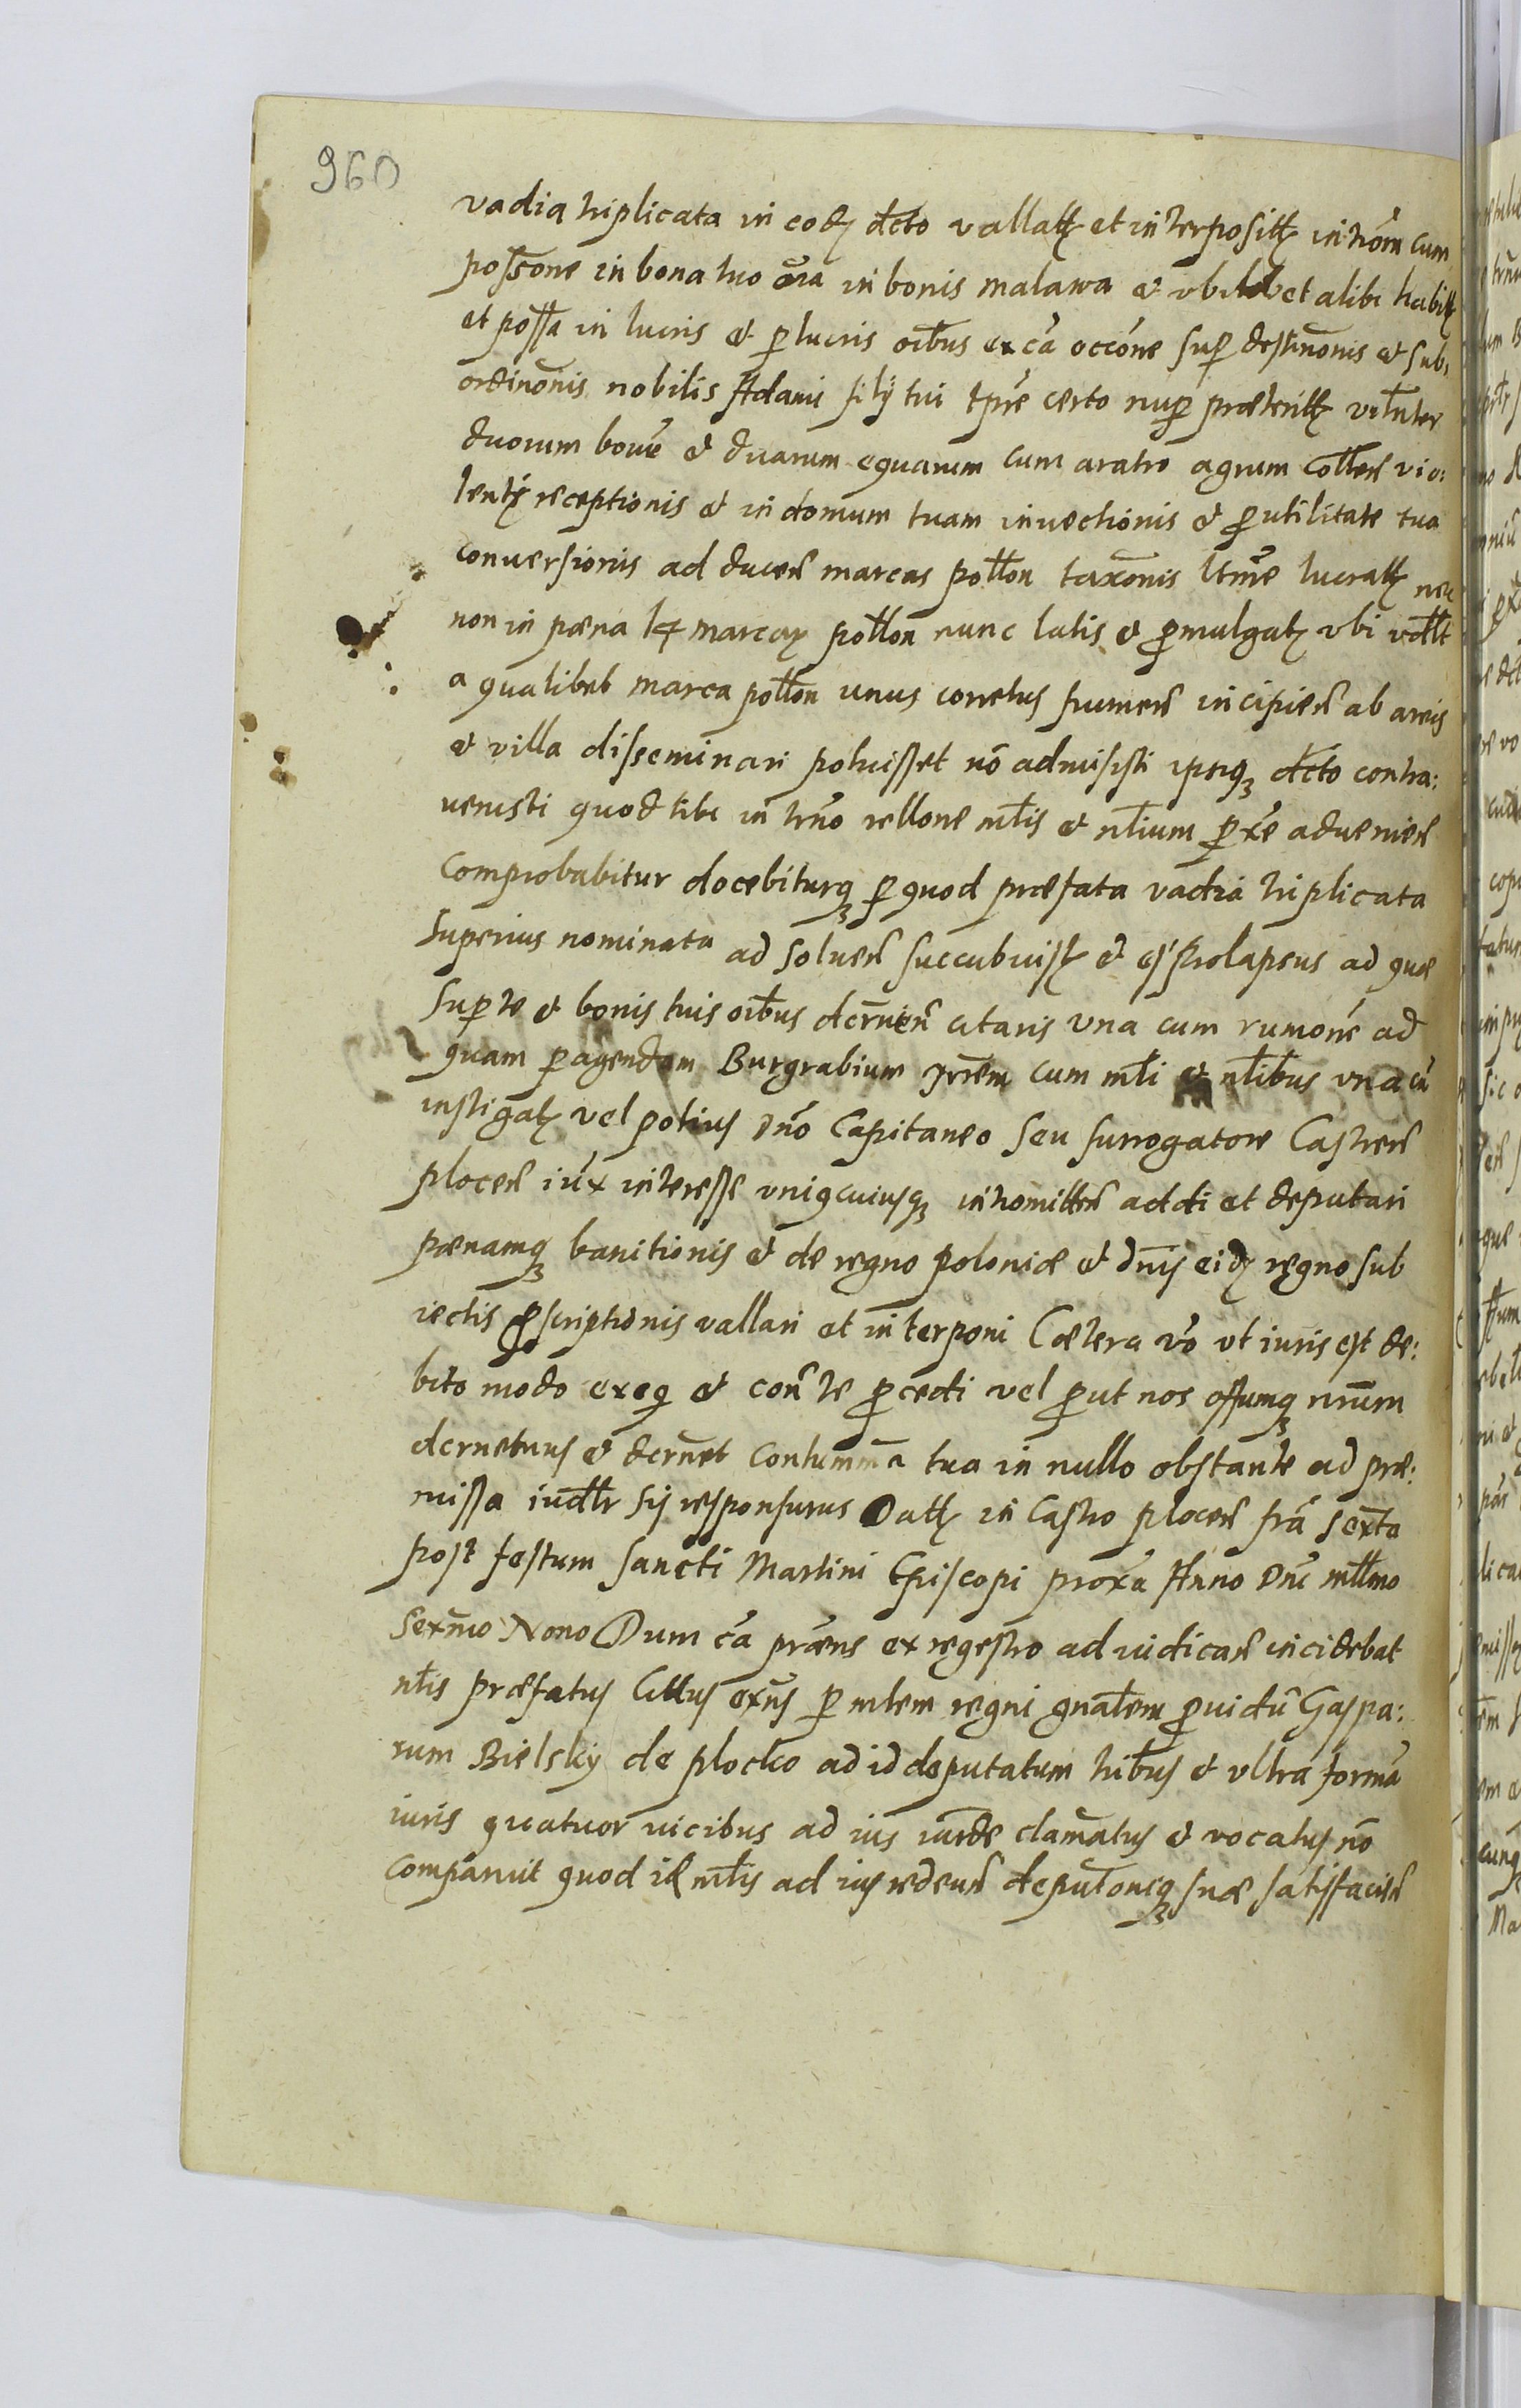 960
vadia triplicata in eodꝫ dcto vallattꝫ et interpositꝫ introm cum
possone in bona tuo oia in bonis malawa et ubilibet alibi habitꝫ
et possa in lucris et perlucris oibus ex ca occone super destinonis et sub:
ordinonis nobilis Adami filij tui tpre certo nuper præteritꝫ
duorum boum et duarum equarum cum aratro agrum vio:
lentꝫ receptionis et in domum tuam invectionis et pro utilitate tua
conversionis ad ducen marcas pollon taxonis ltme lucrattꝫ nec
non in pæna 14 marcarꝫ pollon nunc latis et promulgatꝫ ubi
a qualibet marca pollon unus corretus frumen incipien ab areis
et villa disseminari potuisset no admisisti ipsiqꝫ dcto contra:
venisti quod tibi in trno rellone mltis et nlium proxe advenien
comprobabitur docebiturqꝫ per quod præfata vadia triplicata
superius nominata ad solven succubuistꝫ et es prolapsus ad quæ
super te et bonis tuis oibus dcrnien citaris una cum rumone ad
quam peragendam Burgrabium Jrrem cum mlti et nltibus una cu
instigatꝫ vel potius Dno Capitaneo seu surrogatore Castren
plocen iux interesse uniqcuiusqꝫ intromitten addi et deputari
pænamqꝫ banitionis et de regno poloniæ et dnijs eidꝫ regno sub
iectis proscriptionis vallari et interponi Cætera vo ut iuris est de:
bito modo exeqi et con te procedi vel prout nos offumqꝫ nrum
dcrnetuus et dcrnet contumma tua in nullo obstante ad præ:
missa iudltr sis responsurus Dattꝫ in Castro plocen fra sexta
post festum sancti Martini Episcopi proxa Anno Dni mlllmo
sexmo Nono Dum ca præns ex regestro ad iudican incidebat
nlis præfatus Citlus exns per mlem regni gnalem providu Gaspa:
rum Bielsky de plocko ad id deputatum tribus et ultra forma
iuris quatuor vicibus ad ius iurde clamatus et vocatus no
comparuit quod id mltis ad ius redeun deputoniqꝫ suæ satisfacien